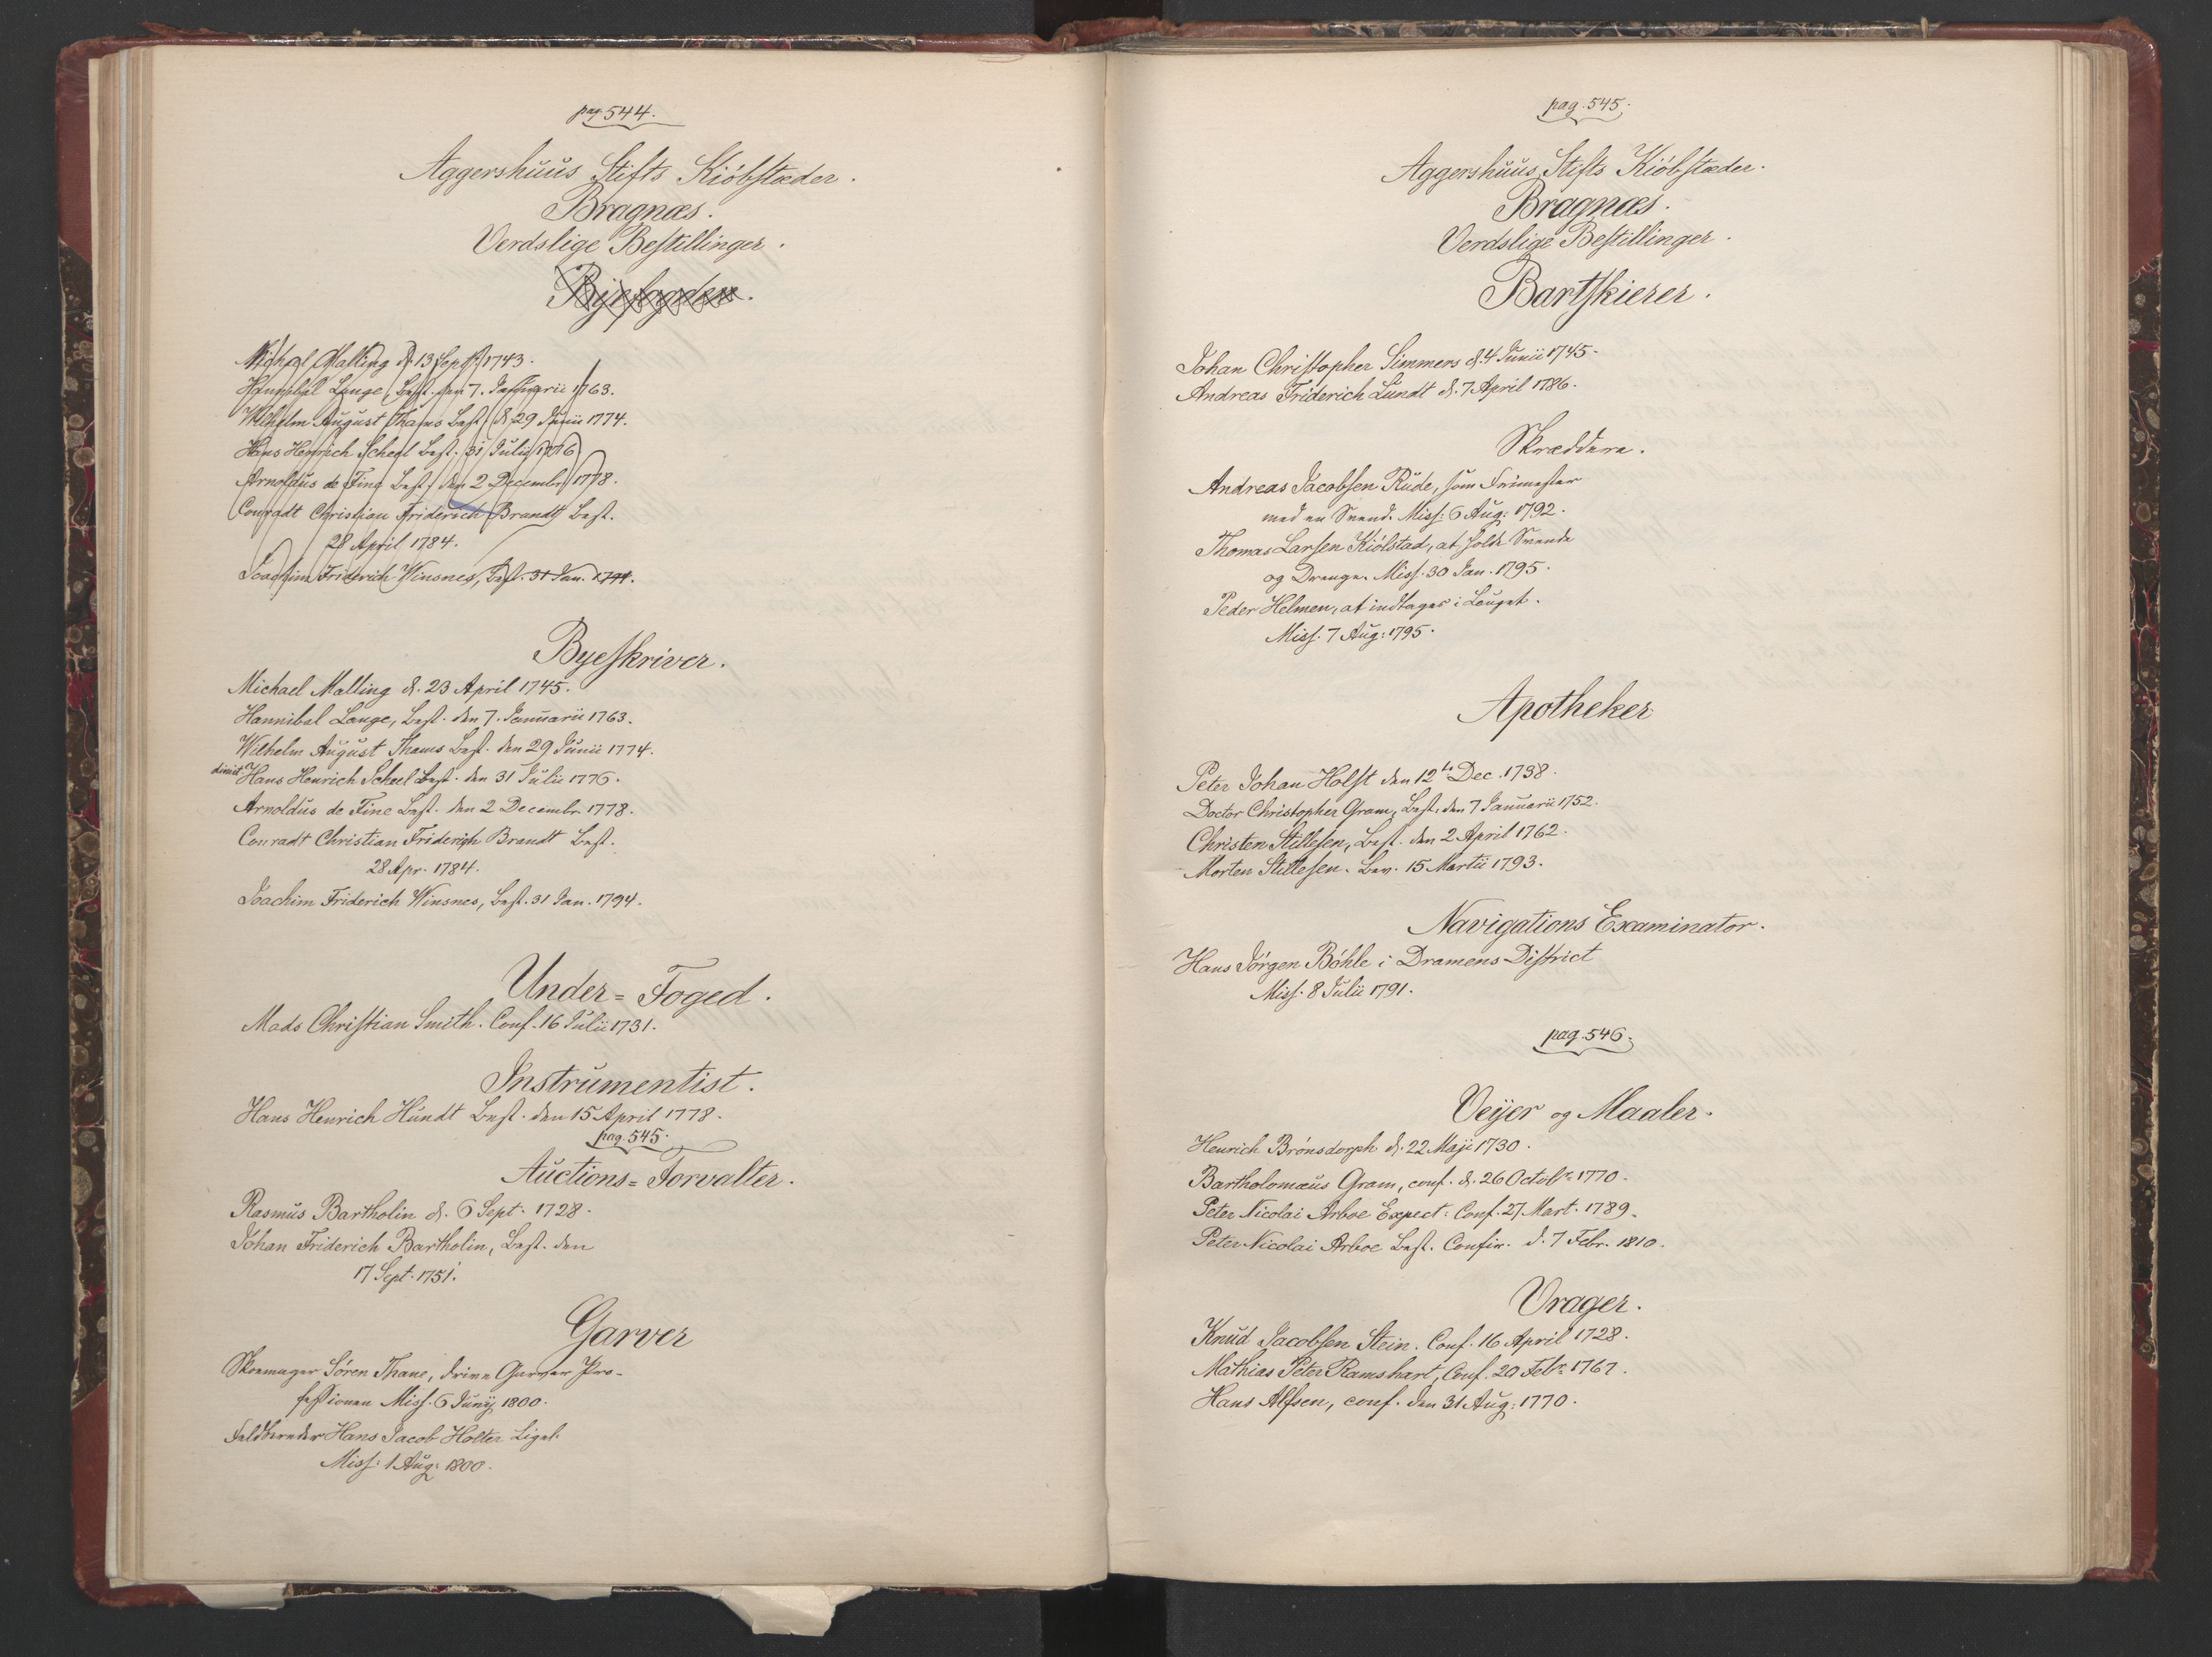 pag. 544.
Aggershuus Stifts Kiöbstæder.
Bragnæs.
Verdslige Bestillinger.
Byefogder.
Michael Malling d. 13 Septbr 1743.
Hannibal Lange, Best. den 7. Januarii 1763.
Wilhelm August Thams Best. d. 29 Junii 1774.
Hans Henrich Scheel Best. 31 Julii 1776
Arnoldus de Fine Best. den 2 Decembr 1778.
Conradt Christian Friderich Brandt Best.
28 April 1784.
Joachim Friderich Winsnes, Best. 31 Jan. 1794.
Byeskriver.
Michael Malling d. 23 April 1745.
Hannibal Lange, Best. den 7. Januarii 1763.
Wilhelm August Thams Best. den 29 Junii 1774.
dimit Hans Henrich Scheel Best. den 31 Julii 1776.
Arnoldus de Fine Best. den 2 Decembr. 1778.
Conradt Christian Friderich Brandt Best.
28 Apr. 1784.
Joachim Friderich Winsnes, Best. 31 Jan. 1794.
Under=Foged.
Mads Christian Smith. Conf. 16 Julii 1731.
Instrumentist.
Hans Henrich Hundt Best. den 15 April 1778.
pag. 545.
Auctions=Forvalter.
Rasmus Bartholin d. 6 Sept. 1728.
Johan Friderich Bartholin, Best. den
17 Sept. 1751.
Garver
Skoemager Sören Thane, drive Garver Pro-
fessionen Miss. 6 Junij 1800.
Feldbereder Hans Jacob Holter Liget.
Miss: 1 Aug: 1800.
pag. 545.
Aggershuus Stifts Kiöbstæder.
Bragnæs.
Verdslige Bestillinger.
Bartskierer.
Johan Christopher Simmers d. 4 Junii 1745.
Andreas Friderich Lundt d. 7 April 1786.
Skræddere.
Andreas Jacobsen Rude, som Frimester
med en Svend. Miss: 6 Aug: 1792.
Thomas Larsen Kiölstad, at holde Svende
og Drenge. Miss. 30 Jan. 1795.
Peder Helmen, at indtages i Lauget.
Miss. 7 Aug: 1795.
Apotheker
Peter Johan Holst den 12te Dec. 1738.
Doctor Christopher Gram, Best. den 7 Januarii 1752.
Christen Stillesen, Best. den 2 April 1762.
Morten Stillesen. Bev. 15 Martii 1793.
Navigations Examinator.
Hans Jörgen Böhle i Dramens District
Miss. 8 Julii 1791.
pag. 546.
Veijer og Maaler.
Henrich Brönsdorph d. 22 Maji 1730.
Bartholomæus Gram, conf. d. 26 Octobr. 1770.
Peter Nicolai Arboe Expect: Conf. 27 Mart. 1789.
Peter Nicolai Arboe Best. Confir. d. 7 Febr. 1810.
Vrager.
Knud Jacobsen Stein. Conf. 16 April 1728.
Mathias Peter Ramshart, Conf. 20 Febr. 1767.
Hans Alfsen, conf. den 31 Aug: 1770.